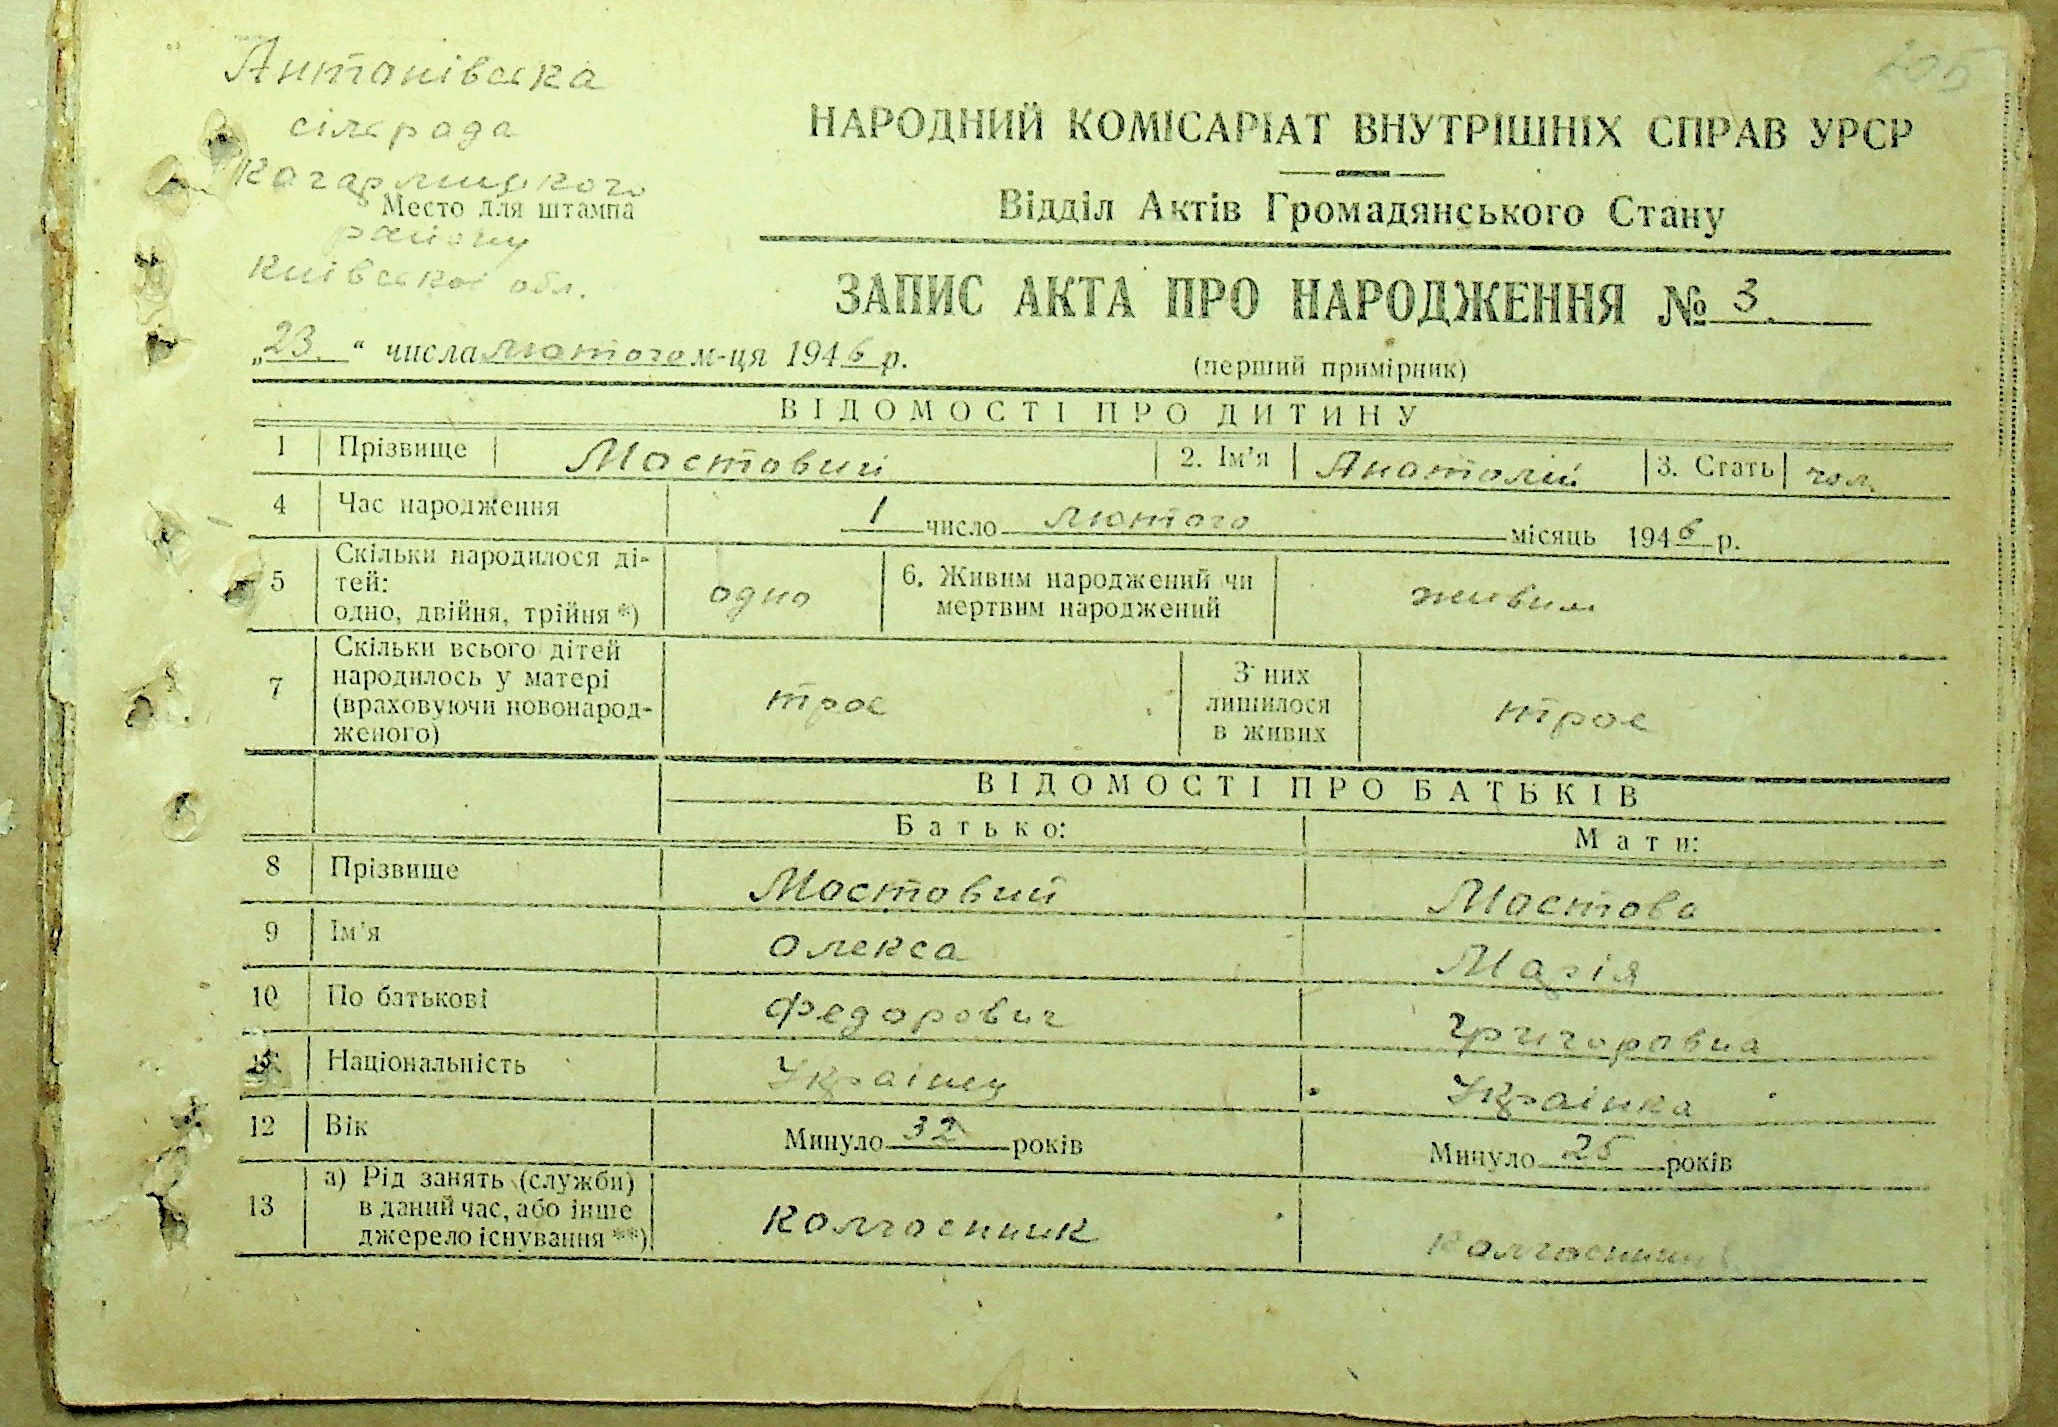 205
Антонівська
сільрада
Кагарлицького
Место для штампа
району
Київської обл.
НАРОДНИЙ КОМІСАРІАТ ВНУТРІШНІХ СПРАВ УРСР
Відділ Актів Громадянського Стану
ЗАПИС АКТА ПРО НАРОДЖЕННЯ № 3.
„23.“ числа лютого м-ця 1946 р.
(перший примірник)
ВІДОМОСТІ ПРО ДИТИНУ
1 Прізвище Мостовий 2. Ім'я Анатолій 3. Стать чол.
4 Час народження 1 число лютого місяць 1946 р.
5 Скільки народилося ді-
тей:
одно, двійня, трійня *)
одно
6. Живим народжений чи
мертвим народжений
живим
7 Скільки всього дітей
народилось у матері
(враховуючи новонарод-
женого)
троє
З них
лишилося
в живих
троє
ВІДОМОСТІ ПРО БАТЬКІВ
Батько: Мати:
8 Прізвище Мостовий Мостова
9 Ім'я Олекса Марія
10 По батькові Федорович Григоровна
Національність Українец Українка
12 Вік Минуло 32 років Минуло 25 років
13 а) Рід занять (служби)
в даний час, або інше
джерело існування **)
колгоспник